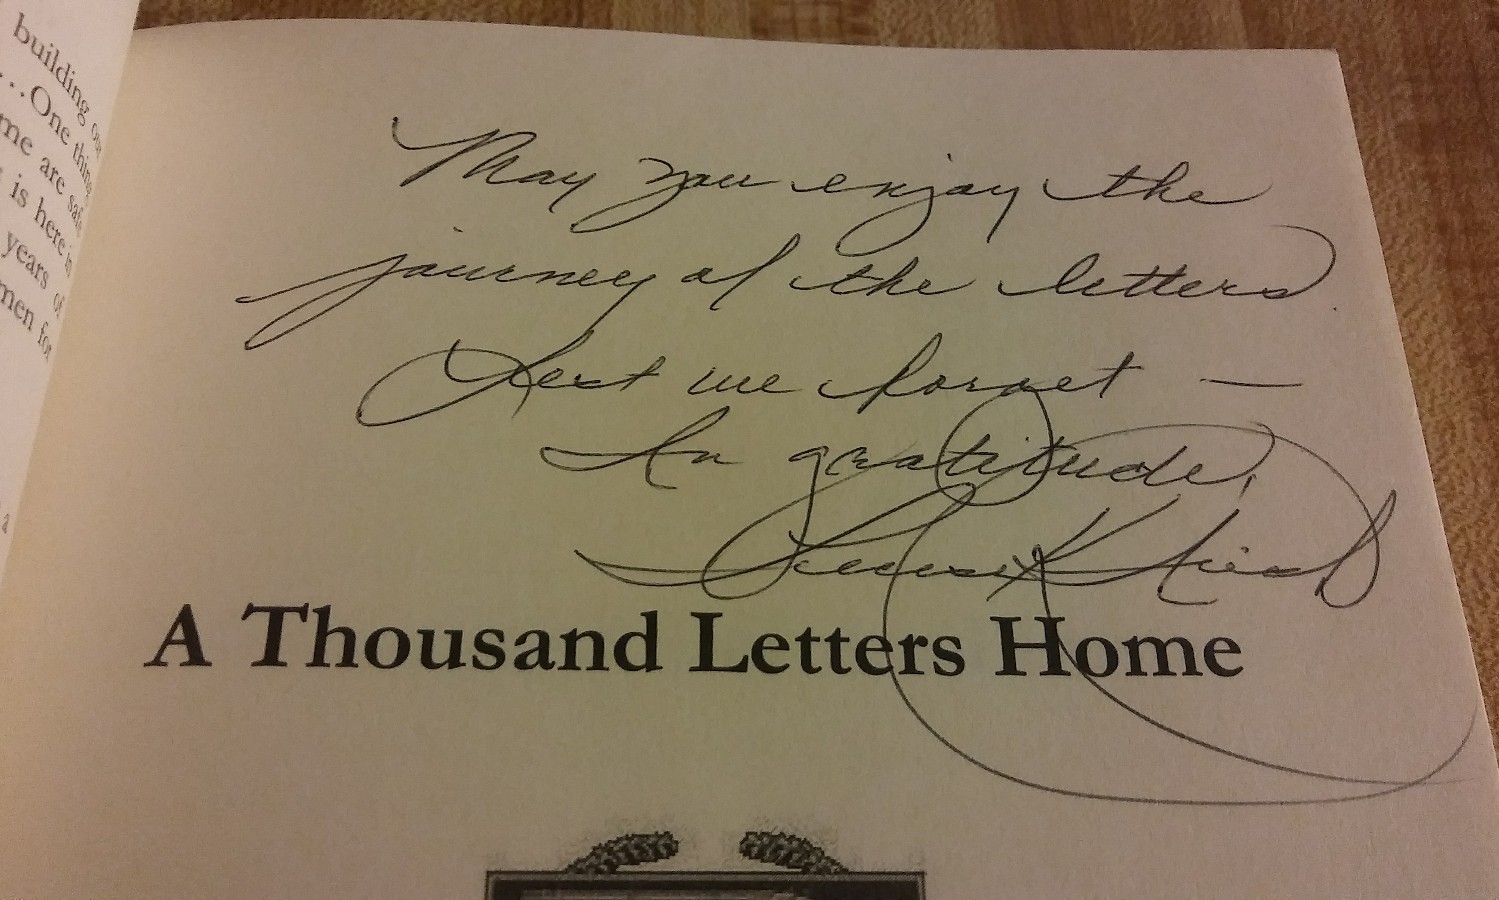 building our
...One thing
me are safe
is here in
years of
men for
a
May you enjoy the
journey of the letters.
Lest we forget —
In gratitude,
A Thousand Letters Home